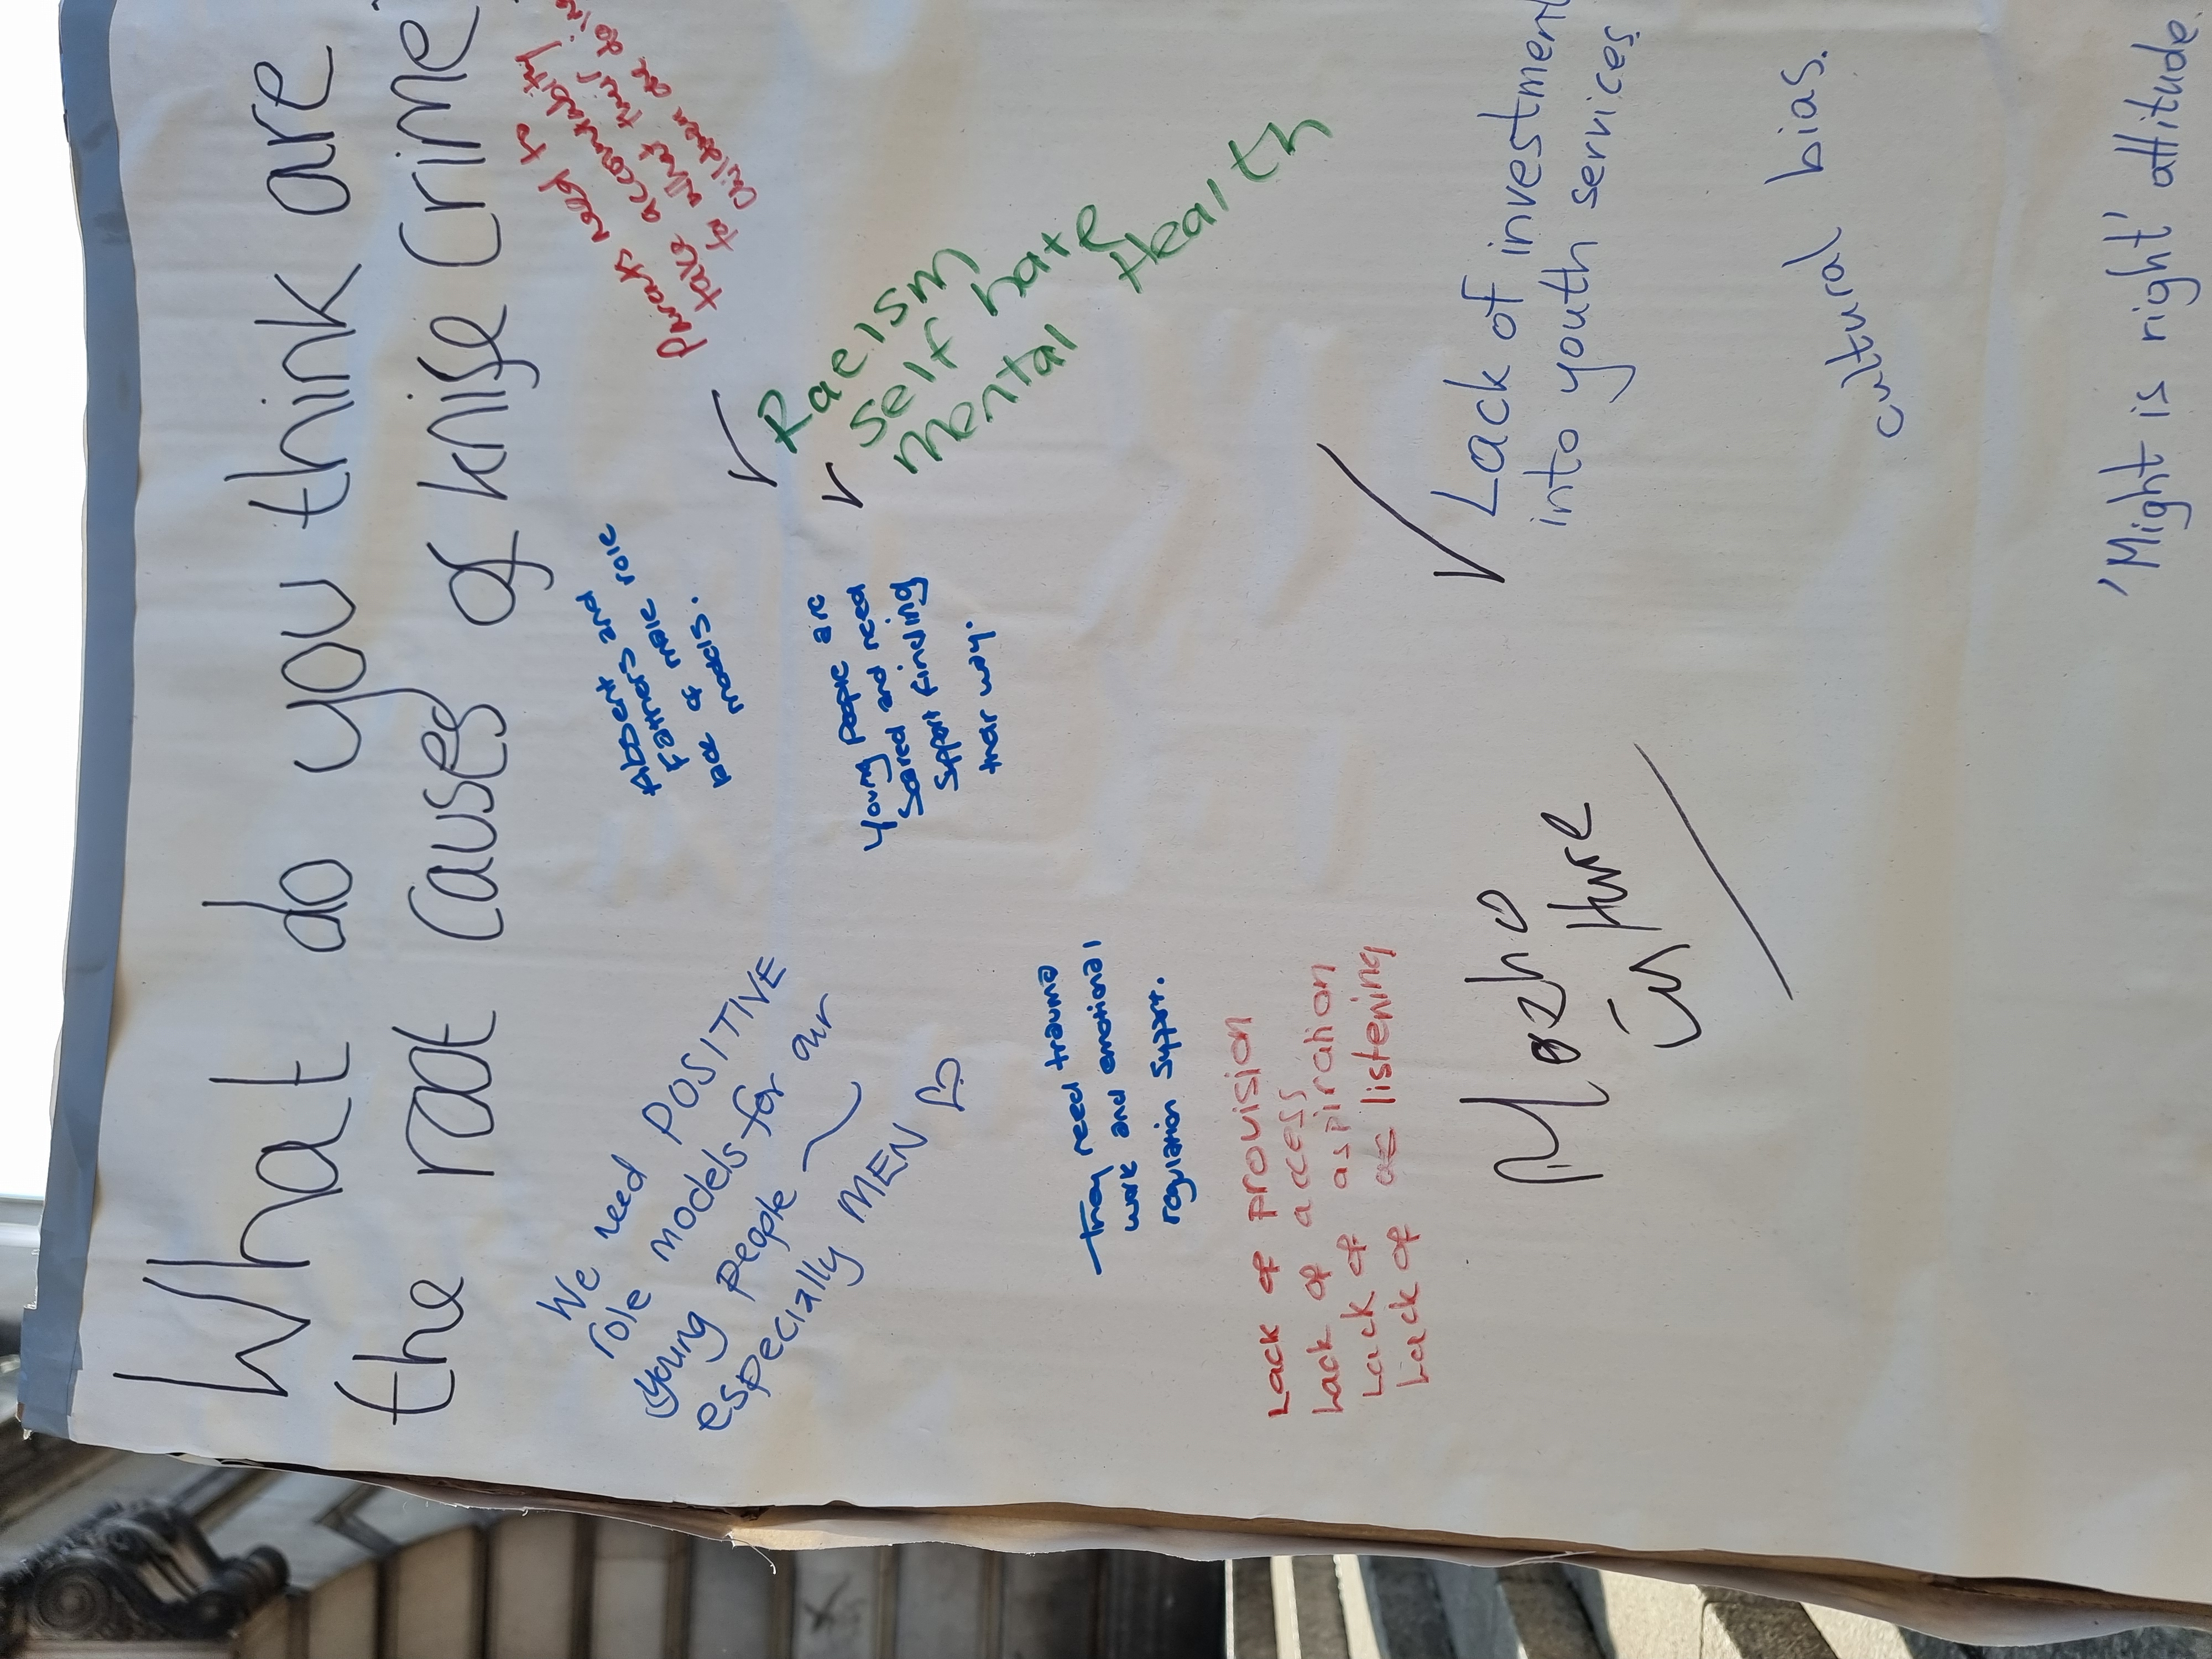 What do you think are
the root causes of knife Crime
We need POSITIVE
role models for our
young people
especially MEN
Absent and
Fathers and
lack of male role
models.
Parents need to
take accountability
for what their
children are doing
Racism
Self hate
Mental Health
Young People are
Scared and need
Support Finding
their way.
They need trauma
work and emotional
regulation Support.
Lack of provision
Lack of access
Lack of aspiration
Lack of listening
Lack of investment
into youth services
Macho
Culture
cultural bias.
'Might is right' attitude.